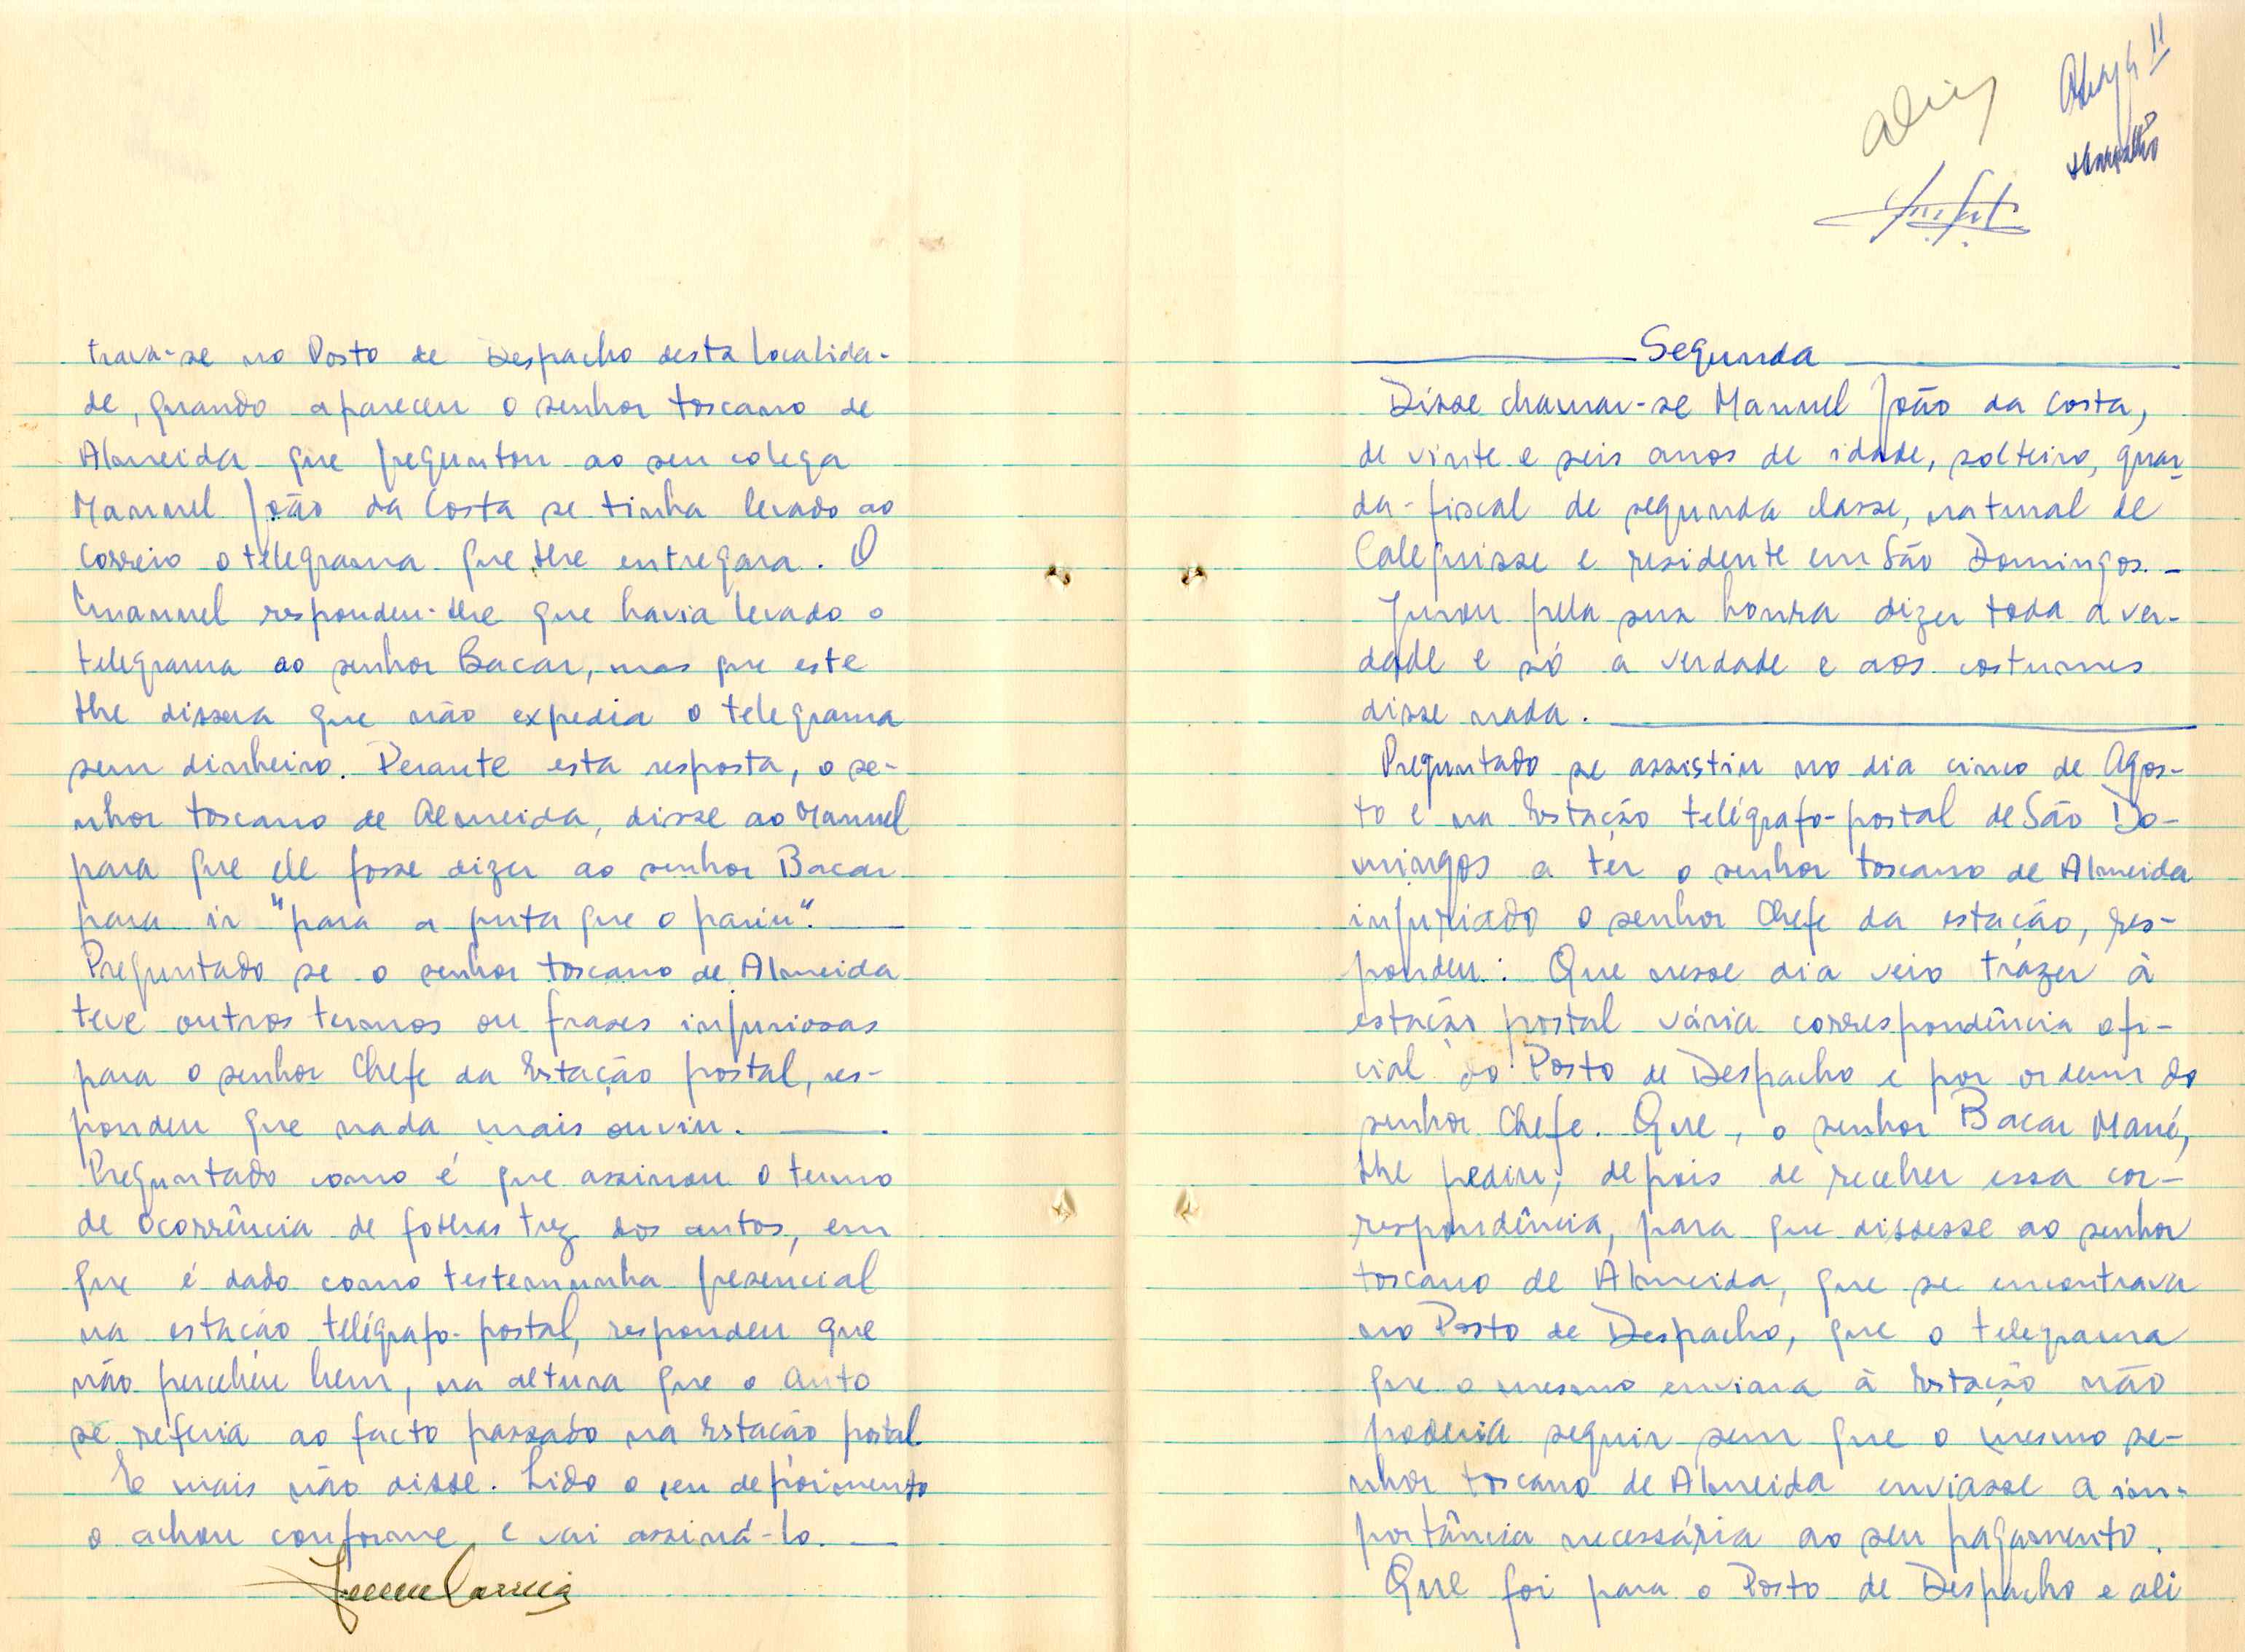 trava-se no Posto de Despacho desta localida-
de, quando apareceu o senhor Toscano de
Almeida que preguntou ao seu colega
Manuel João da Costa se tinha levado ao
Correio o telegrama que lhe entregara. O
Manuel respondeu-lhe que havia levado o
telegrama ao senhor Bacar, mas que este
lhe dissera que não expedia o telegrama
sem dinheiro. Perante esta resposta, o se-
nhor Toscano de Almeida, disse ao Manuel
para que ele fosse dizer ao senhor Bacar
para ir "para a puta que o pariu".
Preguntado se o senhor Toscano de Almeida
teve outros termos ou frases injuriosas
para o senhor Chefe da Estação postal, res-
pondeu que nada mais ouviu.
Preguntado como é que assinou o termo
de ocorrência de folhas trez dos autos, em
que é dado como testemunha presencial
na estação telégrafo-postal, respondeu que
não percebeu bem, na altura que o auto
se referia ao facto passado na Estação postal
E mais não disse. Lido o seu depoimento
o achou conforme e vai assiná-lo.
Segunda
Disse chamar-se Manuel João da Costa,
de vinte e seis anos de idade, solteiro, guar-
da-fiscal de segunda classe, natural de
Calequisse e residente em São Domingos.-
Jurou pela sua honra dizer toda a ver-
dade e só a verdade e aos costumes
disse nada.
Preguntado se assistiu no dia cinco de Agos-
to e na Estação telégrafo-postal de São Do-
mingos a ter o senhor Toscano de Almeida
injuriado o senhor Chefe da estação, res-
pondeu: Que nesse dia veio trazer à
estação postal vária correspondência ofi-
cial do Posto de Despacho e por ordem do
senhor Chefe. Que, o senhor Bacar Mané,
lhe pediu, depois de receber essa cor-
respondência, para que dissesse ao senhor
Toscano de Almeida, que se encontrava
no Posto de Despacho, que o telegrama
que o mesmo enviara à Estação não
poderia seguir sem que o mesmo se-
nhor Toscano de Almeida enviasse a im-
portância necessária ao seu pagamento.
Que foi para o Posto de Despacho e ali